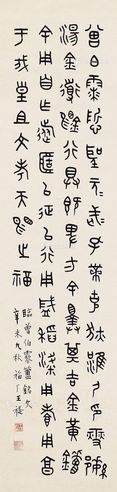 曾白霥悊聖元武孔黹克狄淮夷印燮繁
湯金道錫行具既卑方余擇其吉金黃鑪
余用自作旅簠以征以行用盛稻粱用孝用享
于我皇且文考天賜之福
臨曾伯霥簠銘文
辛未九秋福厂王禔